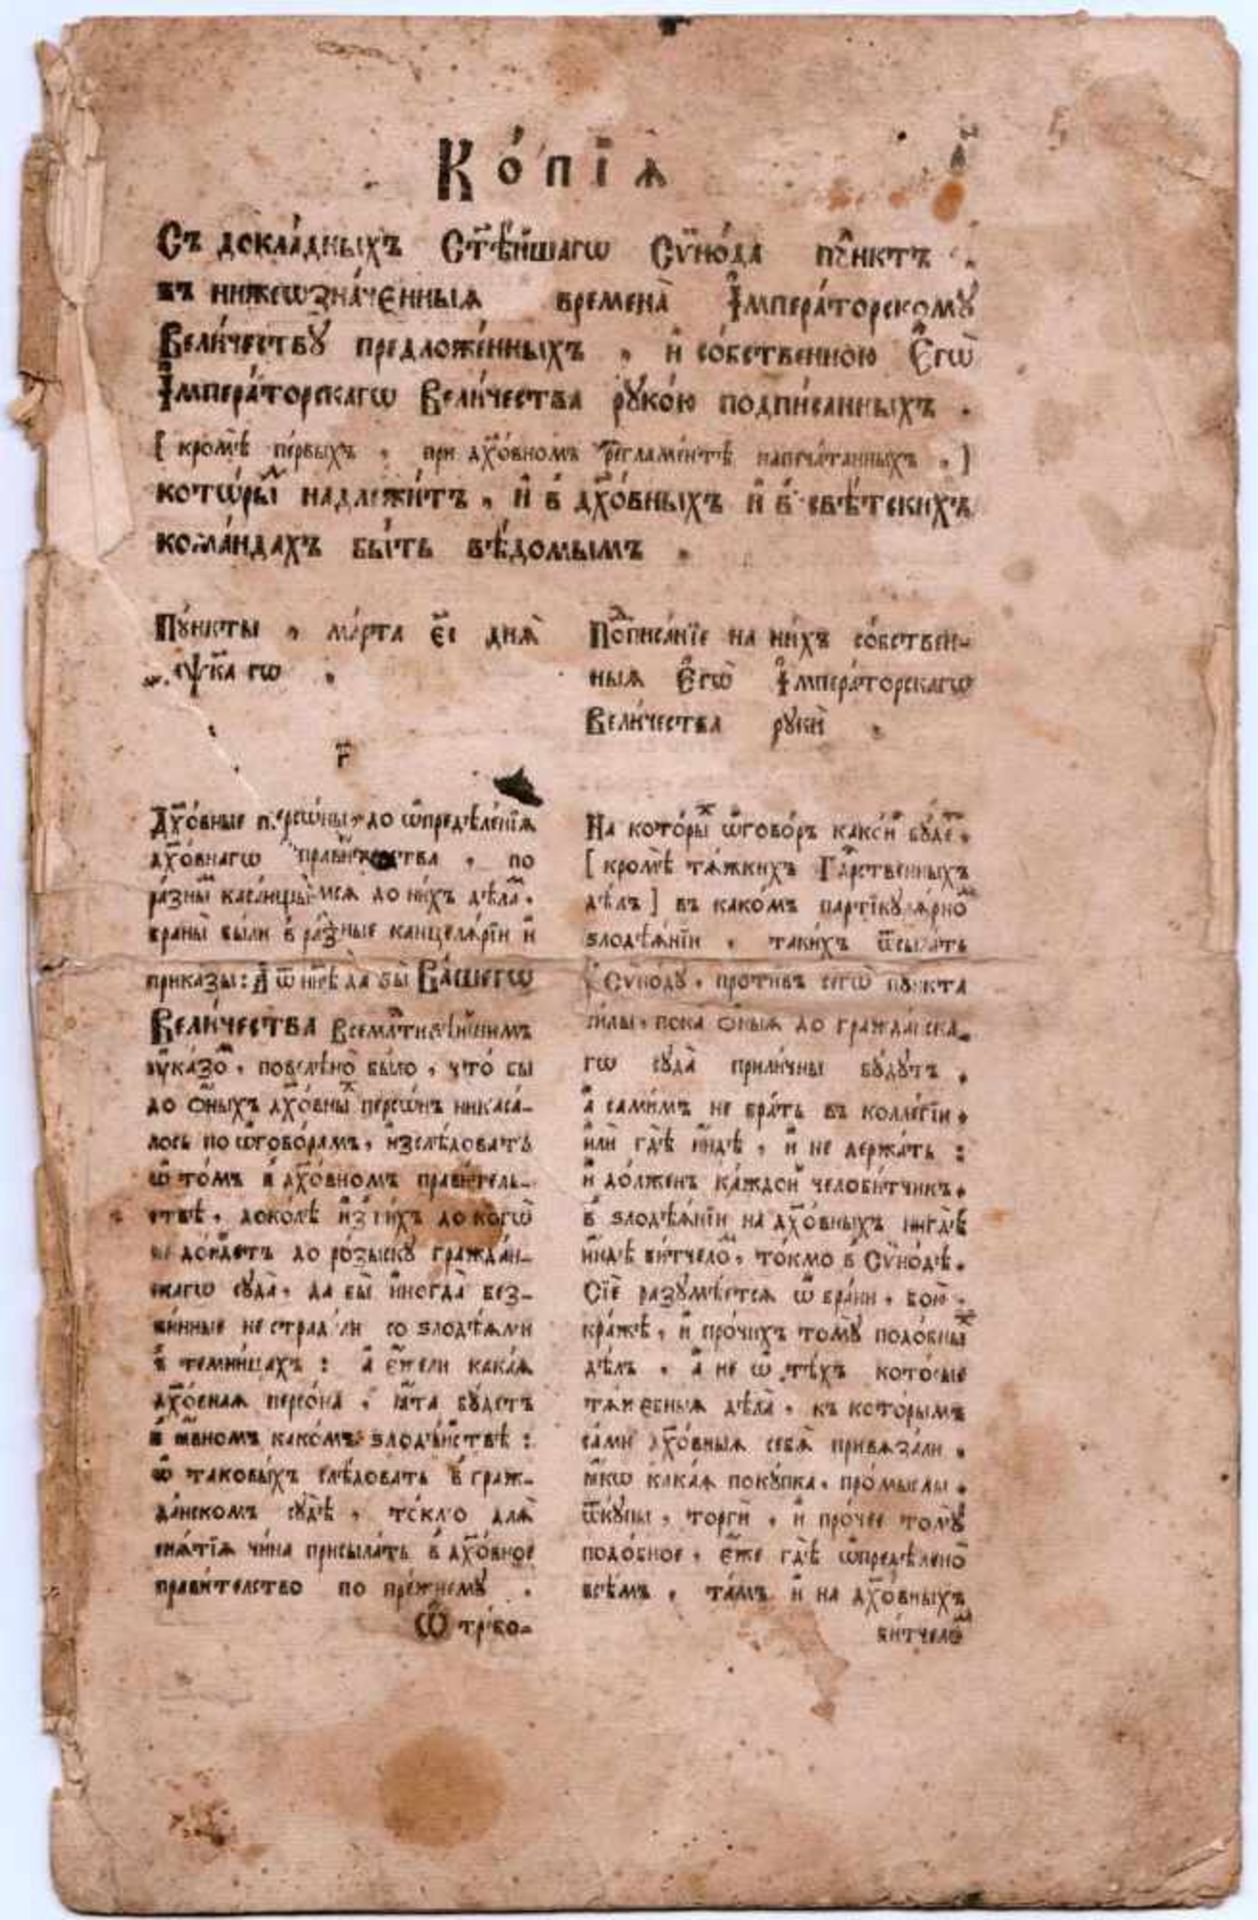 Ко́пїѧ
Съ докла́дныхъ Ст҃ѣ́йшагѡ Сѵно́да пꙋ́нктъ
въ нижеѡзна́ченныѧ времена̀ І҆мпера́торскомꙋ
Вели́чествꙋ предложе́нныхъ , и҆ со́бственною Є҆гѡ̀
І҆мпера́торскагѡ Вели́чества рꙋко́ю подпи́санныхъ .
[ кромѣ̀ пе́рвыхъ , при дх҃о́вномъ регла́ментѣ напеча́танныхъ , ]
кото́рыⷨ надлежи́тъ , и҆ в̾ дх҃о́вныхъ и҆ в̾ свѣ́тскихъ
кома́ндахъ бы́ть вѣ́домымъ .
Пꙋ́нкты , ма́рта є҃і днѧ̀
҂аѱк҃а гѡ .
Поⷣписа́нїе на ни́хъ со́бствен-
ныѧ Є҆гѡ̀ І҆мпера́торскагѡ
Вели́чества рꙋкѝ .
г҃
Дх҃о́вные персѡ́ны, до ѡ҆предѣле́нїѧ
дх҃о́внагѡ прави́телства , по
ра́зныⷨ каса́ющымсѧ до ни́хъ дѣлаⷨ ,
браны̀ бы́ли в̾ ра́зные канцелѧ́рїи и҆
прика́зы: А҆ ѿ нн҃ѣ да бы̀ Ва́шегѡ
Вели́чества Всемлⷭ҇тивѣ́йшимъ
ᲂу҆ка́зоⷨ , повелѣно̀ бы́ло , что́ бы
до ѻ҆́ныхъ дх҃о́вныⷯ персѡ́нъ никаса́-
лось по ѡ҆гово́рамъ, и҆зслѣ́довать
ѡ҆ то́мъ в̾ дх҃о́вномъ прави́тель-
ствѣ , доко́лѣ и҆з̾ ни́хъ до когѡ̀
не до́йдетъ до ро́зыскꙋ гражда́н-
скагѡ сꙋда̀, да бы̀ и҆ногда̀ без-
ви́нные не страда́ли со ѕлодѣ́ѧми
в̾ темни́цахъ : а҆ є҆́жели кака́ѧ
дх҃о́внаѧ персо́на , ꙗ҆́та бꙋ́детъ
в̾ ꙗ҆́вномъ како́мъ ѕлодѣ́йствѣ :
ѡ҆ таковы́хъ слѣ́довать в̾ граж-
да́нскомъ сꙋдѣ̀ , то́кмо длѧ̀
снѧ́тїѧ чи́на присыла́ть в̾ дх҃о́вное
прави́телство по пре́жнемꙋ .
Ѡ҆ тре́бо-
На кото́рыⷯ ѡ҆гово́ръ како́й бꙋ́деⷮ ,
[ кромѣ̀ тѧ́жкихъ Гдⷭ҇рственныхъ
дѣ́лъ ] въ како́мъ партїкꙋлѧ́рноⷨ
ѕлодѣ́ѧнїи , таки́хъ ѿсыла́ть
к̾ Сѵно́дꙋ , про́тивъ сегѡ̀ пꙋ́нкта
си́лы, пока ѻ҆́ныѧ до гражда́нска-
гѡ сꙋда̀ прили́чны бꙋ́дꙋтъ ,
а҆ сами́мъ не бра́ть въ колле́гїи ,
и҆лѝ гдѣ̀ и҆ндѣ̀ , и҆ не держа́ть :
и҆ до́лженъ ка́ждой челоби́тчикъ ,
в̾ ѕлодѣ́ѧнїи на дх҃о́вныхъ нигдѣ̀
и҆ндѣ̀ би́тчелоⷨ , то́кмо в̾ Сѵно́дѣ .
Сїѐ разꙋмѣ́етсѧ ѡ҆ бра́ни , бою̀ ,
кра́жѣ , и҆ про́чихъ томꙋ̀ подо́бныⷯ
дѣ́лъ , а҆ не ѡ҆ тѣ́хъ кото́рые
тѧ́жебныѧ дѣла̀ , къ кото́рымъ
са́ми дх҃о́выѧ себѧ̀ привѧза́ли ,
ꙗ҆́кѡ кака́ѧ покꙋ́пка , про́мыслы ,
ѿкꙋпы̀ , торги̑ , и҆ про́чее томꙋ̀
подо́бное , є҆́же гдѣ̀ ѡ҆предѣлено̀
всѣ́мъ , та́мъ и҆ на дх҃о́вныхъ
би́тчелоⷨ